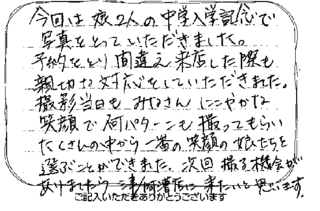 今回は娘2人の中学入学記念で
写真をとっていただきました。
予約をとり間違え来店した際も
親切な対応をしていただきました。
撮影当日もみなさんにこやかな
笑顔で何パターンも撮ってもらい
たくさんの中から一番の笑顔の娘たちを
選ぶことができました。次回撮る機会が
ありましたら 店に来たいと思います。
ご記入いただきありがとうございます